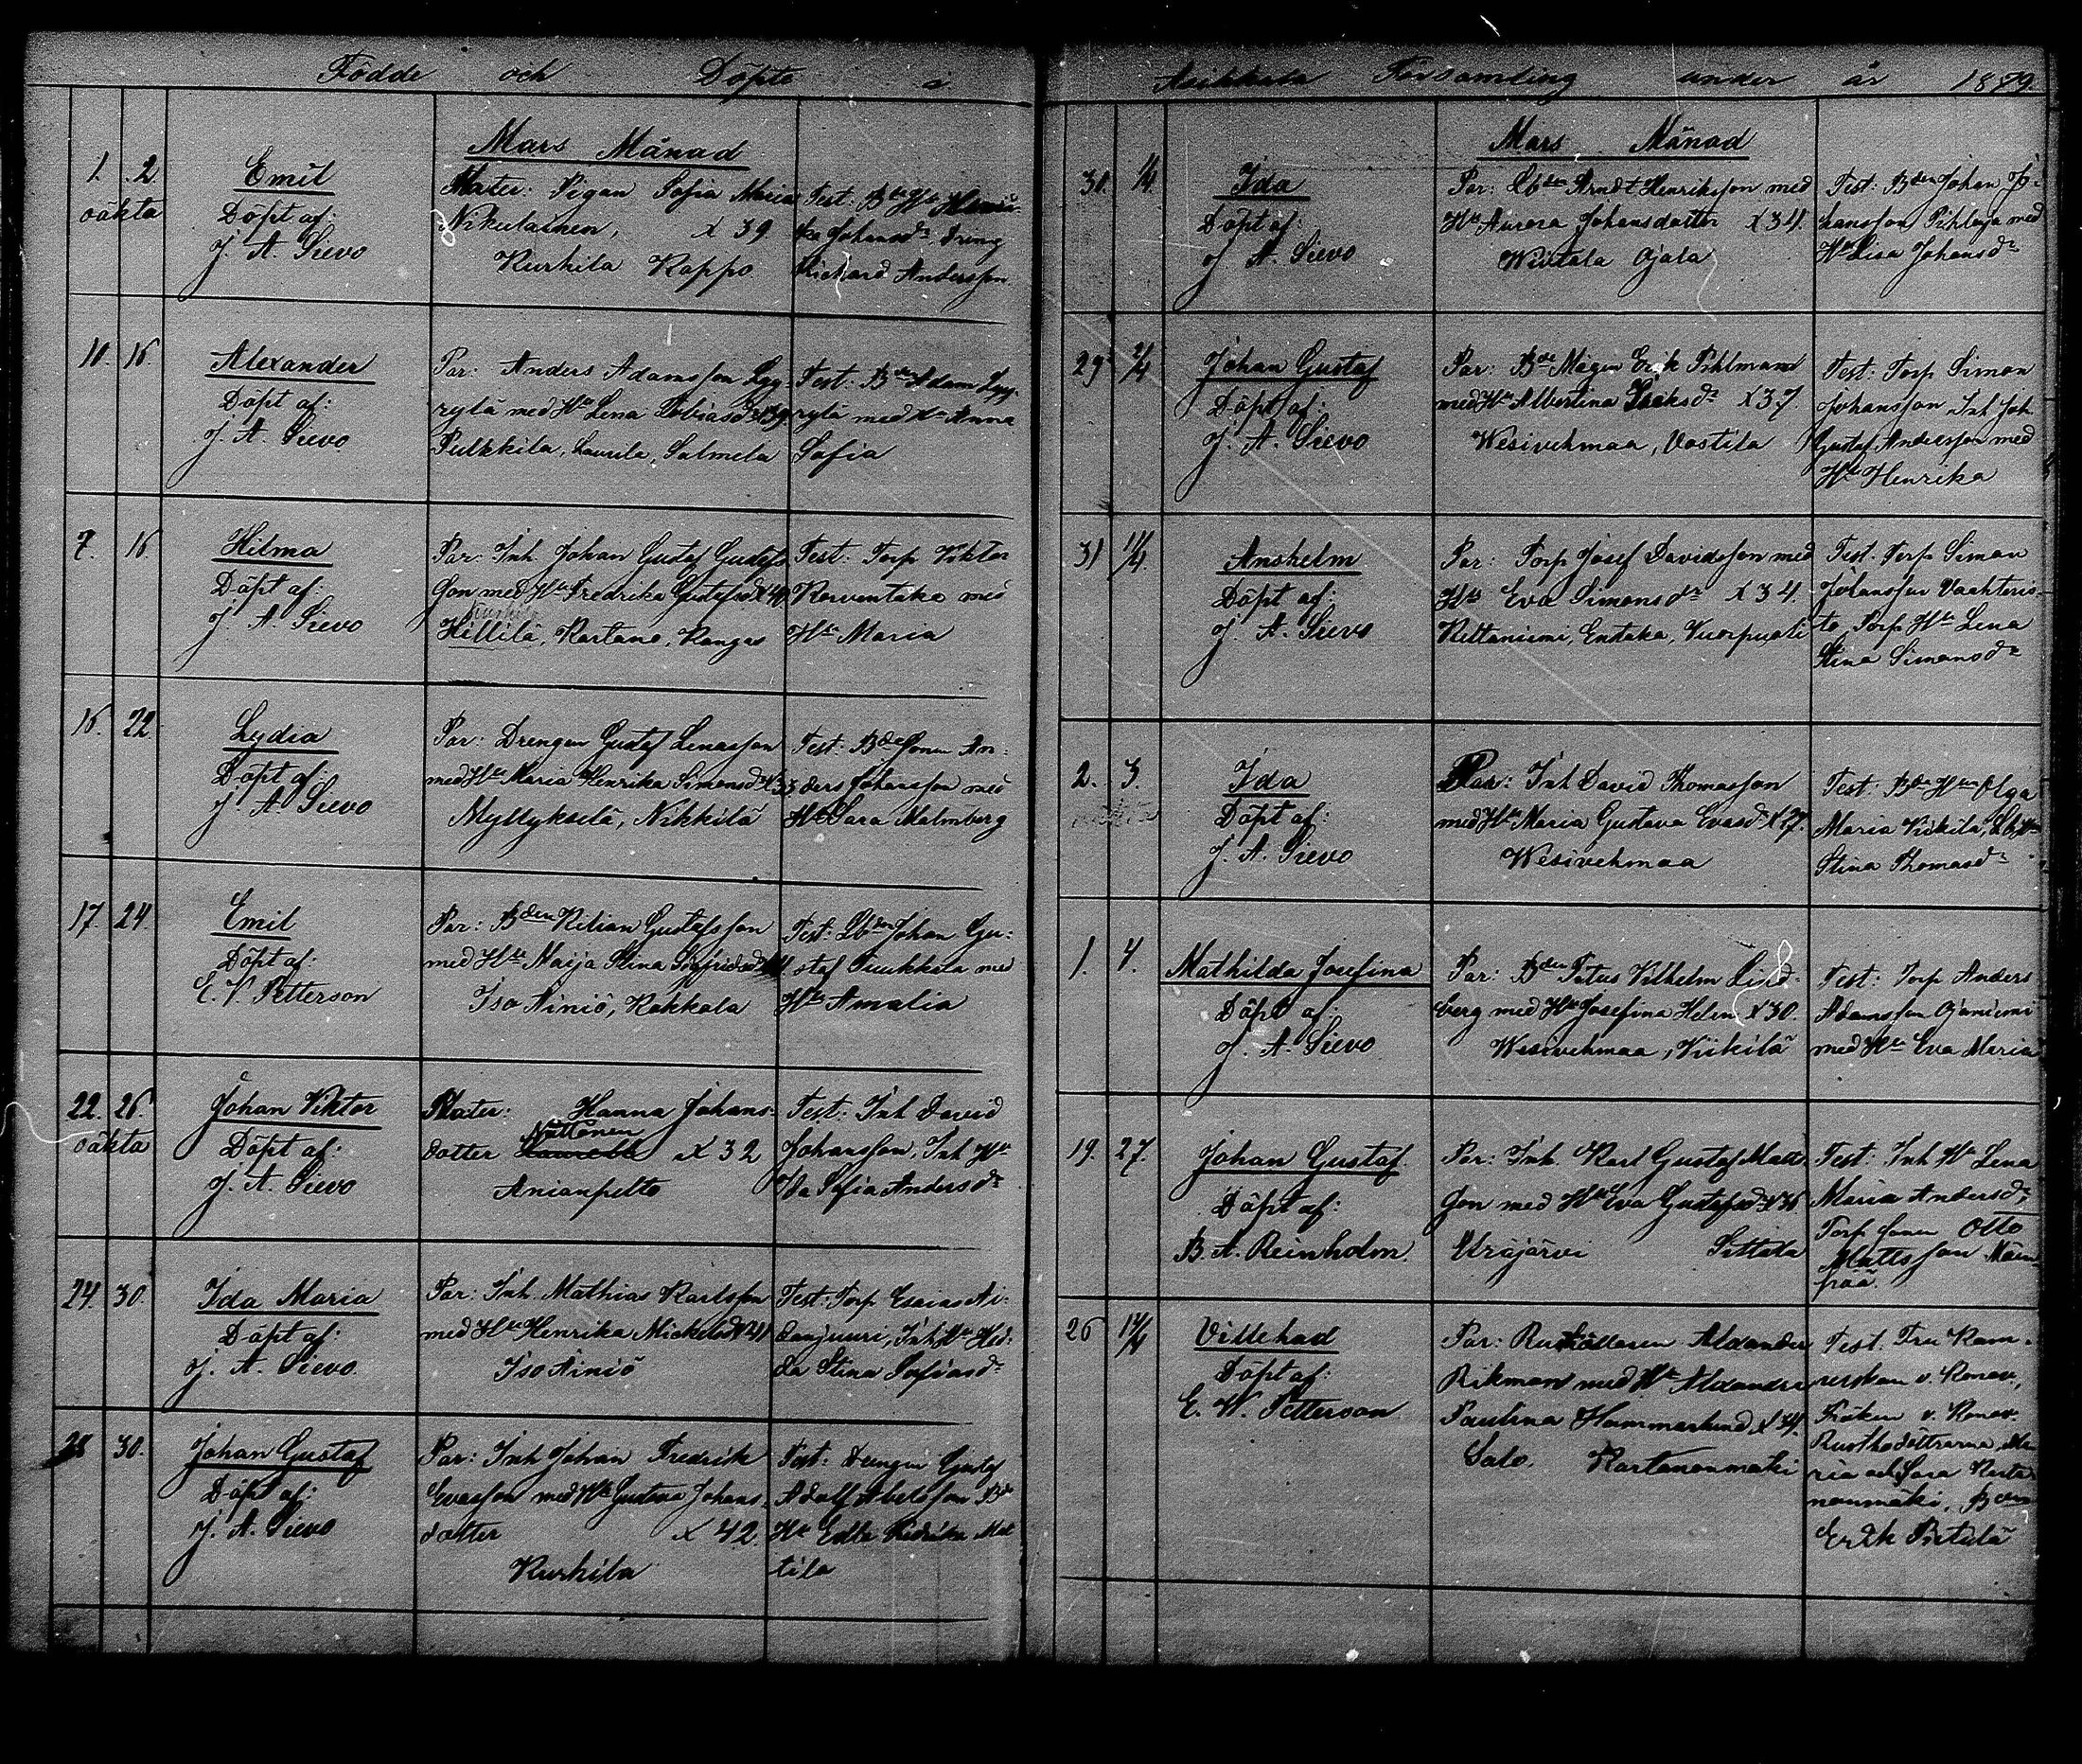 Födde och Döpte i
Mars Månad
1. 2
oäkta
Emil
Döpt af:
J. A. Sievo
Mater: Pigan Sofia Maria
Nikulainen, x 39
Kurhila Kappo
Test: Bde Hu
Johansdr, dräng
Rickard Andersson
10. 16
Alexander
Döpt af:
J. A. Sievo
Par: Anders Adamsson Lyy-
rylä med Hu Lena Tobiasdr x 39.
Pulkkila, Laurila, Salmela
Test: Bden Adam Lyy-
rylä med Hu Anna
Sofia
7. 16
Hilma
Döpt af:
J. A. Sievo
Par: Inh Johan Gustaf Gustafs-
son med Hu Fredrika Gustafsdr x 40
Kurhila
Hillilä, Kartano, Kangas
Test: Torp Viktor
Korventaka med
Hu Maria
16. 22
Lydia
Döpt af:
J. A. Sievo
Par: Drengen Gustaf Lenasson
med Hu Maria Henrika Simonsdr x 33
Myllykselä, Nikkilä
Test: Bdesonen An-
ders Johansson med
Hu Sara Malmberg
17. 24.
Emil
Döpt af:
E. V. Petterson
Par: Bden Kilian Gustafsson
med Hu Maija Stina Sigfridsdr
Iso Äiniö, Kokkala
Test: Lbden Johan Gu-
staf Tuukkila med
Hu Amalia
22. 26.
oäkta
Johan Viktor
Döpt af:
J. A. Sievo
Mater: Hanna Johans-
Nattonen
dotter x 32
Anianpelto
Test: Inh David
Johansson, Inh Hu
Ida Sofia Andersdr
24. 30.
Ida Maria
Döpt af:
J. A. Sievo.
Par: Inh. Mathias Karlsson
med Hu Henrika Mickelsdr x 41
Iso Äiniö
Test: Torp Esaias Ai-
danjuuri, Inh Hu Hed-
da Stina Sofiasdr
28 30.
Johan Gustaf
Döpt af:
J. A. Sievo
Par: Inh Johan Fredrik
Evasson med Hu Gustava Johans-
dotter x 42.
Kurhila
Test: Drengen Gustaf
Adolf Abelsson Bde
Hu Edla Fredrika Mat
tila
Asikkala Församling under år 1879.
Mars Månad
30. 1/4
Ida
Döpt af:
J. A. Sievo
Par: Lbden Arndt Henriksson med
Hu Aurora Johansdotter x 34.
Wiitala Ojala
Test: Bden Johan Jo-
hansson Pihlaja med
Hu Lisa Johansdr
29 2/4
Johan Gustaf
Döpt af:
J. A. Sievo
Par: Bde Mågen Erik Pihlman
med Hu Albertina x 37.
Wesivehmaa, Uostila
Test: Torp Simon
Johansson Inh Joh
Gustaf Andersson med
Hu Henrika
31 11/4
Anshelm
Döpt af:
J. A. Sievo
Par: Torp Josef Davidsson med
Hu Eva Simonsdr x 34.
Keltaniemi Entaka, Vuorpuoli
Test: Torp Simon
Johansson Vaahteris-
to, Torp Hu Lena
Stina Simonsdr
2. 3.
Ida
Döpt af:
J. A. Sievo
Par: Inh David Thomasson
med Hu Maria Gustava Evasdr x 27.
Wesivehmaa
Test: Bde Hun Olga
Maria Viikilä, Lb Hu
Stina Thomasdr
1. 4.
Mathilda Josefina
Döpt af:
J. A. Sievo
Par: Bden Titus Vilhelm Lind-
berg med Hu Josefina Helen x 30.
Wesivehmaa, Viikilä
Test: Torp Anders
Adamsson Ojaniemi
med Hu Eva Maria
19. 27.
Johan Gustaf.
Döpt af:
B. A. Reinholm.
Par: Inh. Karl Gustaf Matts
son med Hu Eva Gustafsdr x 36
Urajärvi Sittala
Test: Inh Hu Lena
Maria Andersdr,
Torp sonen Otto
Mattsson Män-
pää.
26 14/4
Villehad
Döpt af:
E. W. Petterson
Par: Rusthållaren Alexander
Rikman med Hu Alexandra
Paulina Hammarlund x 34.
Salo. Kartanonmäki
Test. Fru Kam-
rerskan v. Konow,
Fröken v. Konow.
Rusthodöttrarna Ma-
ria och Sara Karta-
nonmäki, Bden
Erik Pietilä